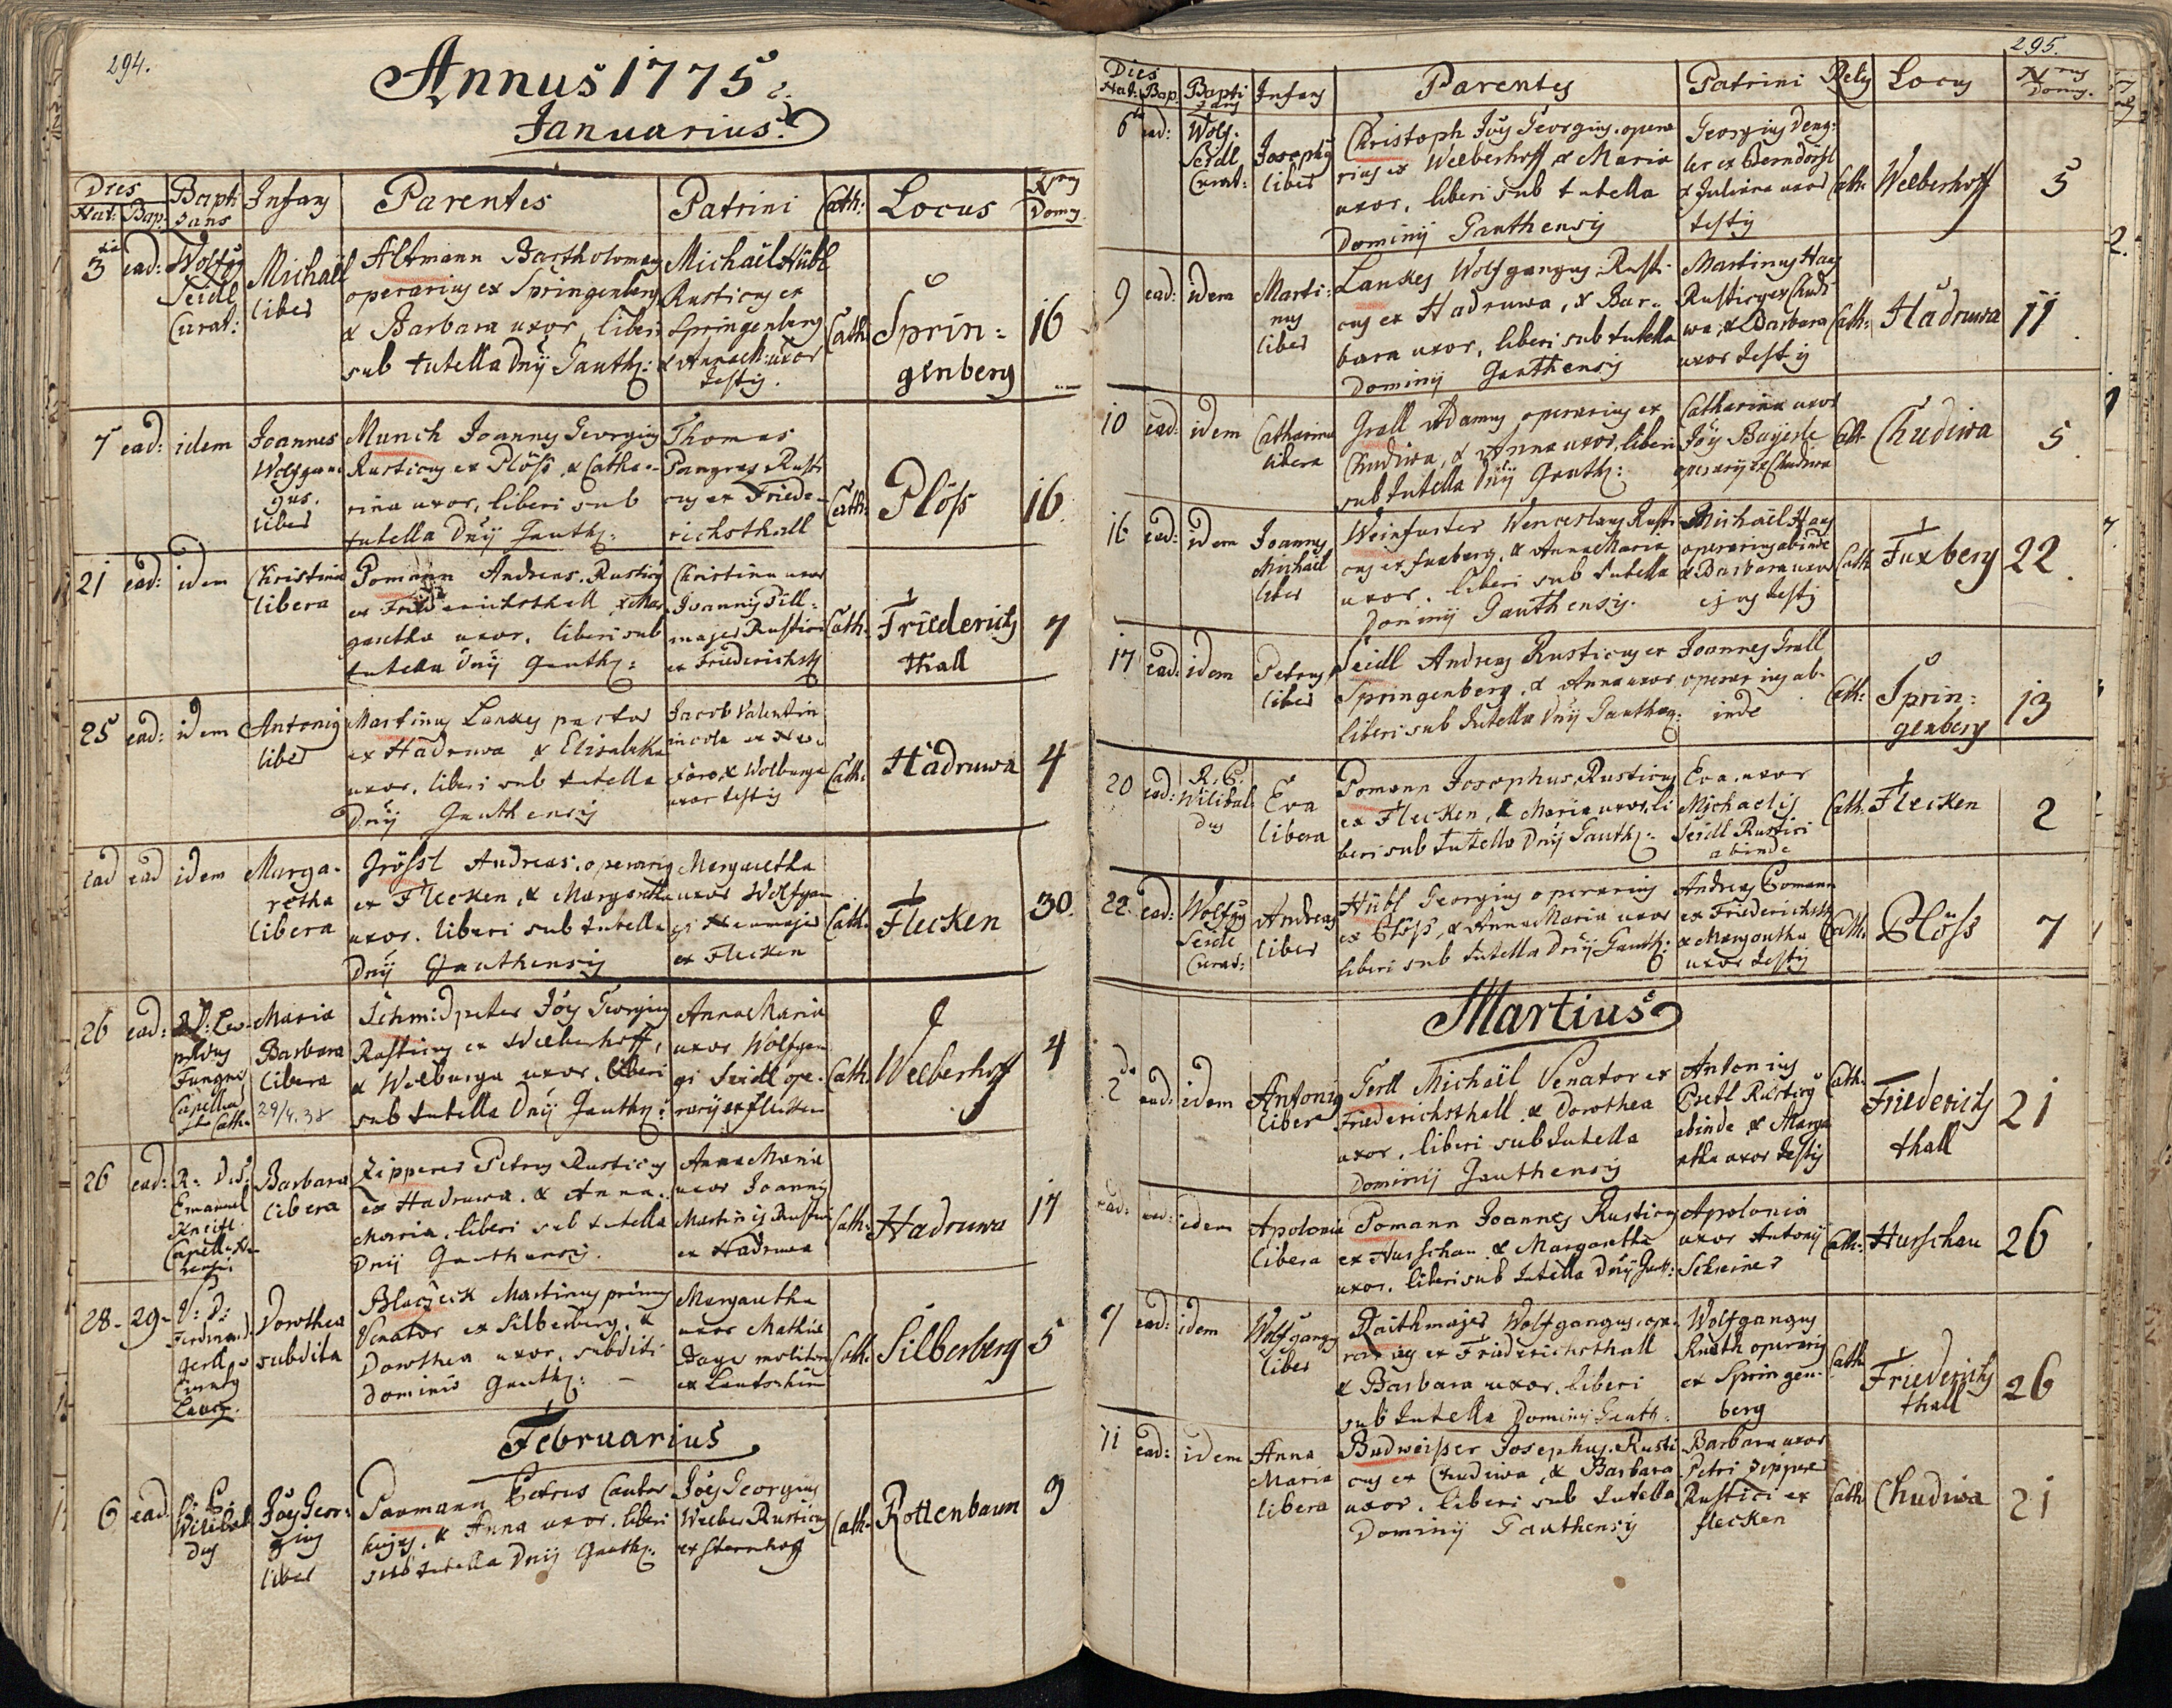 294.
Annus 1775
Januarius.
Dies
Nat: Bap:
Bapti
zans
Infans
Parentes
Patrini
Cath:
Locus
Nrus
Domus
3tia ead:
Wolfgs
Seidl
Curat:
Michaël
liber
Altmann Bartholomeus
operarius ex Springenberg
& Barbara uxor, liberi
sub tutella Dnÿ Gauth:
Michaël Hübl
Rusticus ex
Springenberg
& Anna M: uxor
testis.
Cath:
Sprin=
genberg
16
7 ead: idem
Joannes
Wolfgan=
gus.
liber
Munch Joannes Georgius
Rusticus ex Plöss, & Catha=
rina uxor, liberi sub
tutella Dnÿ Gauth:
Thomas
Pangraz Rusti
cus ex Friede=
richsthall
Cath:
Plöss
16.
21 ead: idem
Christina
libera
Pomann Andreas. Rusticus
ex Friderichsthall & Mar
garetha uxor. liberi sub
tutella Dnÿ Gauth:
Christina uxor
Joannis Pill=
majer Rustici
ex Friederichsth
Cath:
Friederichs
thall
7
25 ead: idem
Antonius
liber
Martinus Lankes pastor
ex Hadruwa & Elisabetha
uxor, liberi sub tutella
Dnÿ Gauthensis
Jacob Valentin
incola ex Neo
foro & Walburga
uxor testis
Cath:
Hadruwa
4
ead ead idem
Marga=
retha
libera
Grössl Andreas, operarius
ex Flecken, & Margaretha
uxor. liberi sub tutella
Dnÿ Gauthensis
Margaretha
uxor Wolfgan
gi Neumajer
ex Flecken
Cath:
Flecken
30.
26 ead:
Capellan
Maria
Barbara
libera
29/4.38
Schmidpeter Joes Georgius
Rusticus ex Weeberhoff,
& Walburga uxor, liberi
sub tutella Dnÿ Gauth:
Anna Maria
uxor Wolfgan
gi Seidl ope=
rarÿ ex flecken
Cath:
Weeberhoff
4
26 ead:
R. D.
Emanuel
Barbara
libera
Zipperer Petrus Rusticus
ex Hadruwa. & Anna
Maria, liberi sub tutella
Dnÿ Gauthensis.
Anna Maria
uxor Joannis
Martinis Rustici
ex Hadruwa
Cath:
Hadruwa
17
28. 29.
Ferdinand
Gerll
Dorothea
subdita
Blaczeck Martinus primus
Venator ex Silberberg, &
Dorothea uxor, subditi
Dominio Gauth:
Margaretha
uxor Mathiæ
molitoris
ex
Cath:
Silberberg
5
Februarius
6 ead
R. P.
Wilibal
dus
Joes Geor=
gius
liber
Paumann Petrus Cauter
hujus, & Anna uxor. liberi
sub tutella Dnÿ Gauth:
Joes Georgius
Weeber Rusticus
ex Sternhof
Cath:
Rottenbaum
9
295.
Dies
Nat: Bap
Bapti
zans
Infans
Parentes
Patrini
Relig
Locus
Nrus
Domus.
6ta ead:
Wolf.
Seidl
Curat:
Josephus
liber
Christoph Joes Georgius. opera
rius ex Weeberhoff & Maria
uxor, liberi sub tutella
Dominÿ Gauthensis
Georgius Deng=
ler ex Berndörfl
& Juliana uxor
testis
Cath:
Weeberhoff
5
9 ead: idem
Marti=
nus
liber
Lankes Wolfgangus Rusti=
cus ex Hadruwa, & Bar=
bara uxor, liberi sub tutella
Dominÿ Gauthensis
Martinus Haas
Rusticus ex Chudi
wa, & Barbara
uxor testis
Cath:
Hadruwa
11
10 ead: idem
Catharina
libera
Grall Adamus operarius ex
Chudiwa, & Anna uxor, liberi
sub tutella Dnÿ Gauth:
Catharina uxor
Jois Bayerle
operarÿ ex Chudiwa
Cath:
Chudiwa
5
16 ead: idem
Joannes
Michaël
liber
Weinfurter Wenceslaus Rusti
cus ex fuxberg, & Anna Maria
uxor. liberi sub tutella
Dominÿ Gauthensis.
Michaël Haas
operarius abinde
& Barbara uxor
ejus testis
Cath
Fuxberg
22
17 ead: idem
Petrus
liber
Seidl Andreas Rusticus ex
Springenberg, & Anna uxor
liberi sub tutella Dnÿ Gauthen:
Joannes Grall
operarius ab=
inde
Cath:
Sprin=
genberg
13
20 ead:
R. P.
Wilibal
dus
Eva
libera
Pomann Josephus, Rusticus
ex Flecken, & Maria uxor, li
beri sub tutella Dnÿ Gauth:
Eva. uxor
Michaelis
Seidl Rustici
abinde
Cath:
Flecken
2
22. ead:
Wolfgs
Seidl
Curat:
Andreas
liber
Hübl Georgius operarius
ex Plöss, & Anna Maria uxor
liberi sub tutella Dnÿ Gauth:
Andreas Pomann
ex Friederichsth
& Margaretha
uxor testis
Cath:
Plöss
7
Martius
2da ead: idem
Antonius
liber
Gerll Michaël Venator ex
Friederichsthall & Dorothea
uxor, liberi sub tutella
Dominÿ Gauthensis
Antonius
Rusticus
abinde & Marga
retha uxor testis
Cath:
Friederichs
thall
21
ead: ead: idem
Apolonia
libera
Pomann Joannes Rusticus
ex Hurschau & Margaretha
uxor, liberi sub tutella Dnÿ Gauth:
Apolonia
uxor Antonÿ
Schreiner
Cath:
Hurschau
26
9 ead: idem
Wolfgangus
liber
Raithmajer Wolfgangus, ope=
rarius ex Friederichsthall
& Barbara uxor. liberi
sub tutella Dominÿ Gauth:
Wolfgangus
operarius
ex Springen=
berg
Cath
Friederichs
thall
26
11 ead: idem
Anna
Maria
libera
Budweisser Josephus. Rusti
cus ex Chudiwa, & Barbara
uxor. liberi sub tutella
Dominÿ Gauthensis
Barbara uxor
Petri Zipperer
Rustici ex
flecken
Cath
Chudiwa
21